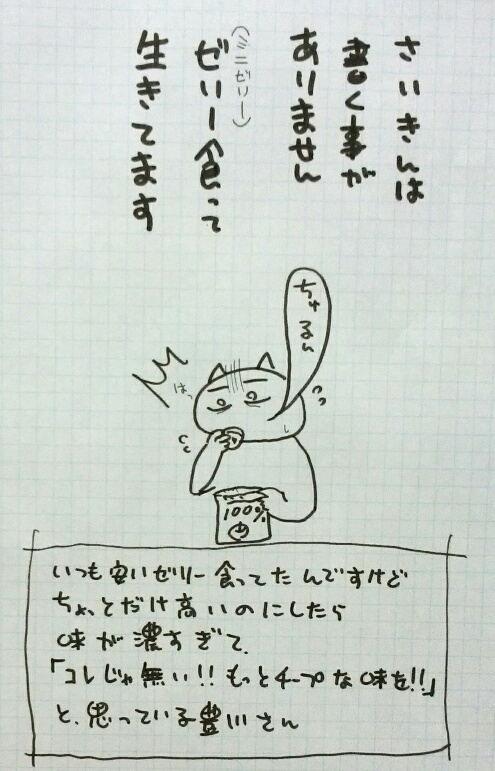 さいきんは
書く事が
ありません
(ミニゼリー)
ゼリー食って
生きてます
ちゅるん
はっ
100%
いつも安いゼリー食ってたんですけど
ちょっとだけ高いのにしたら
味が濃すぎて、
「コレじゃ無い!!もっとチープな味を!!」
と、思っている豊川さん